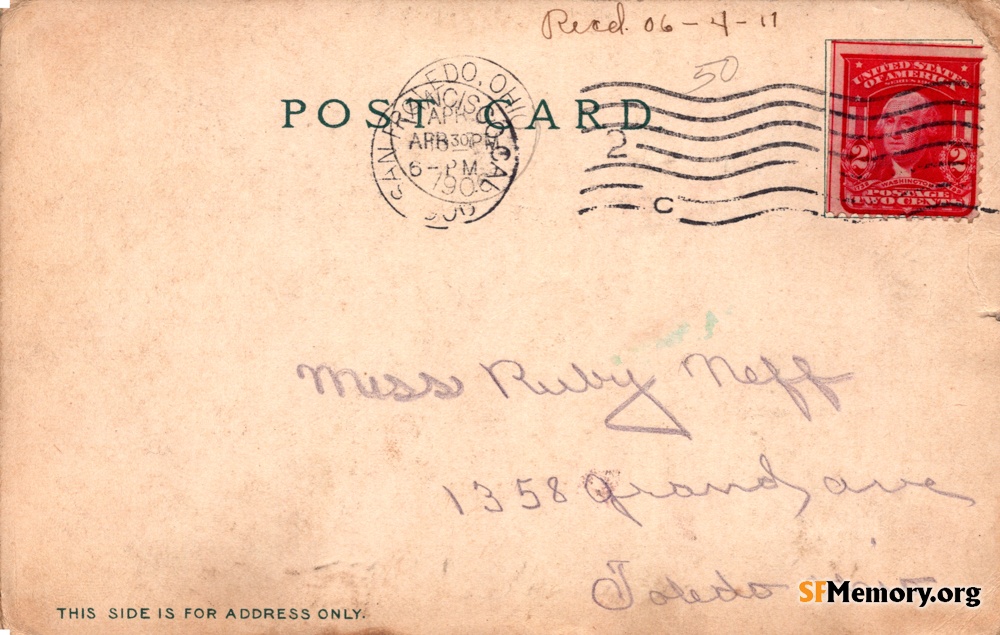 Recd. 06-4-11
50
POST CARD
TOLEDO, OHIO
SAN FRANCISCO, CAL
APR
APR 30 PM
6-PM
190
2
C
UNITED STATES
OF AMERICA
2 2
WASHINGTON
POSTAGE
TWO CENTS
Miss Ruby Neff
1358 Grand ave
Toledo Ohio
THIS SIDE IS FOR ADDRESS ONLY.
SFMemory.org